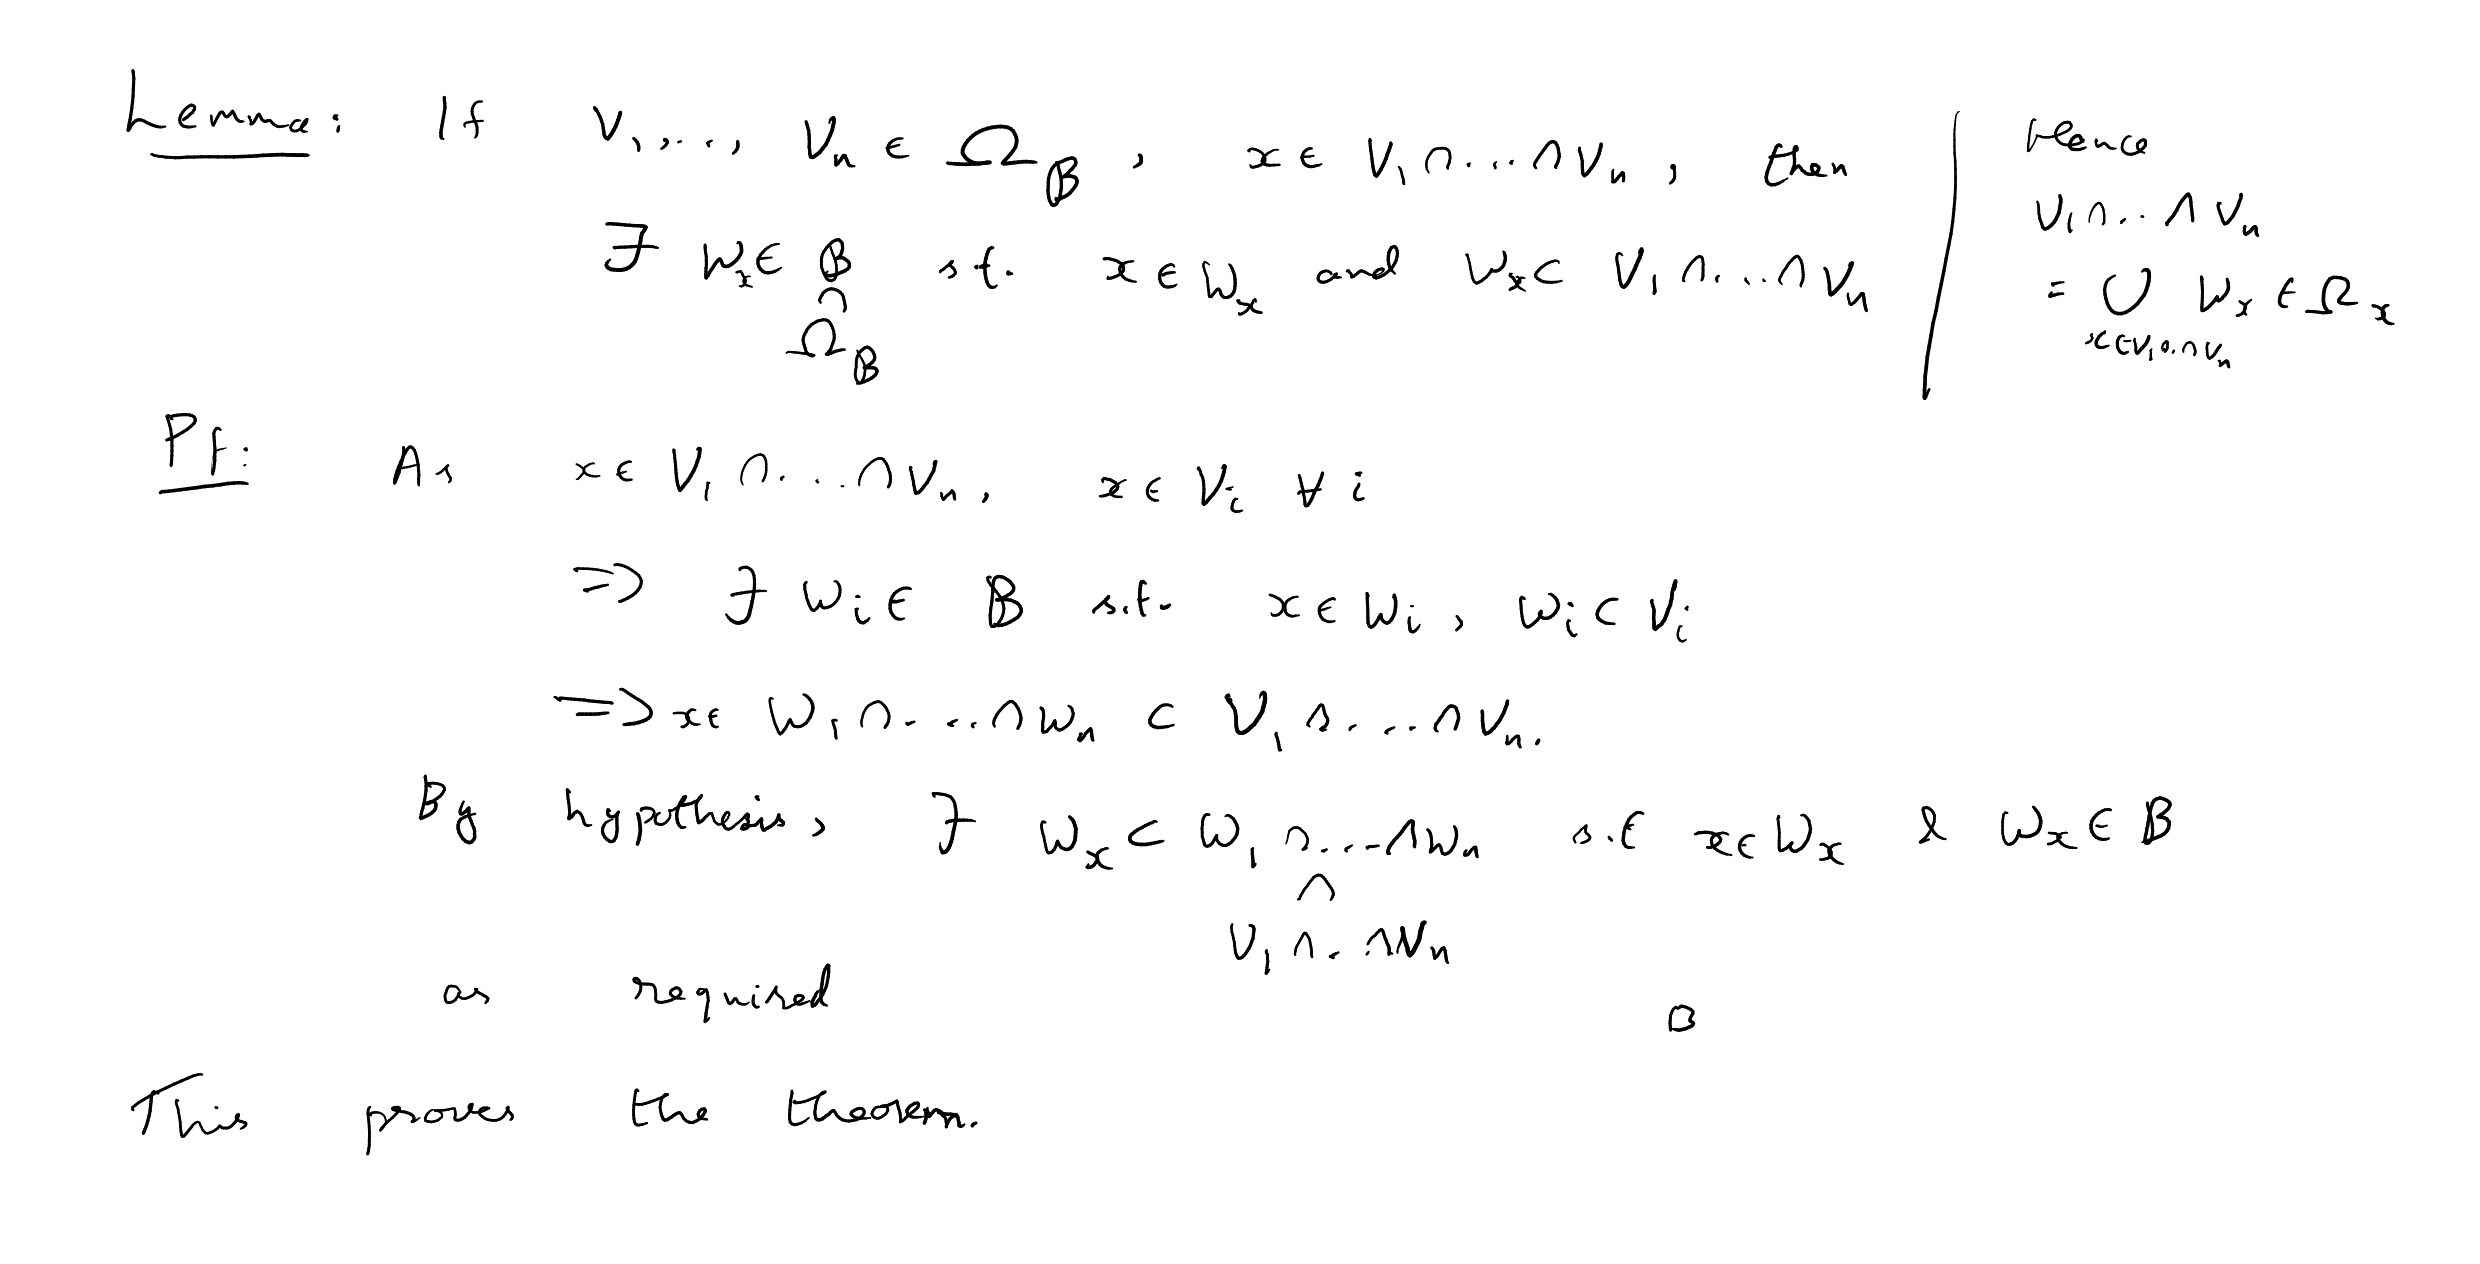 Lemma: If V₁,..., Vₙ ∈ Ω_𝔹, x ∈ V₁ ∩ ... ∩ Vₙ, then
∃ Wₓ ∈ 𝔹 s.t. x ∈ Wₓ and Wₓ ⊂ V₁ ∩ ... ∩ Vₙ
∩
Ω_𝔹
Hence
V₁ ∩ .. ∩ Vₙ
= ∪ Wₓ ∈ Ωₓ
x ∈ V₁ ∩ .. ∩ Vₙ
Pf: As x ∈ V₁ ∩ ... ∩ Vₙ, x ∈ Vᵢ ∀ i
=> ∃ Wᵢ ∈ 𝔹 s.t. x ∈ Wᵢ, Wᵢ ⊂ Vᵢ
=> x ∈ W₁ ∩ ... ∩ Wₙ ⊂ V₁ ∩ ... ∩ Vₙ.
By hypothesis, ∃ Wₓ ⊂ W₁ ∩ ... ∩ Wₙ s.t x ∈ Wₓ & Wₓ ∈ 𝔹
∩
V₁ ∩ .. ∩ Vₙ
as required □
This proves the theorem.